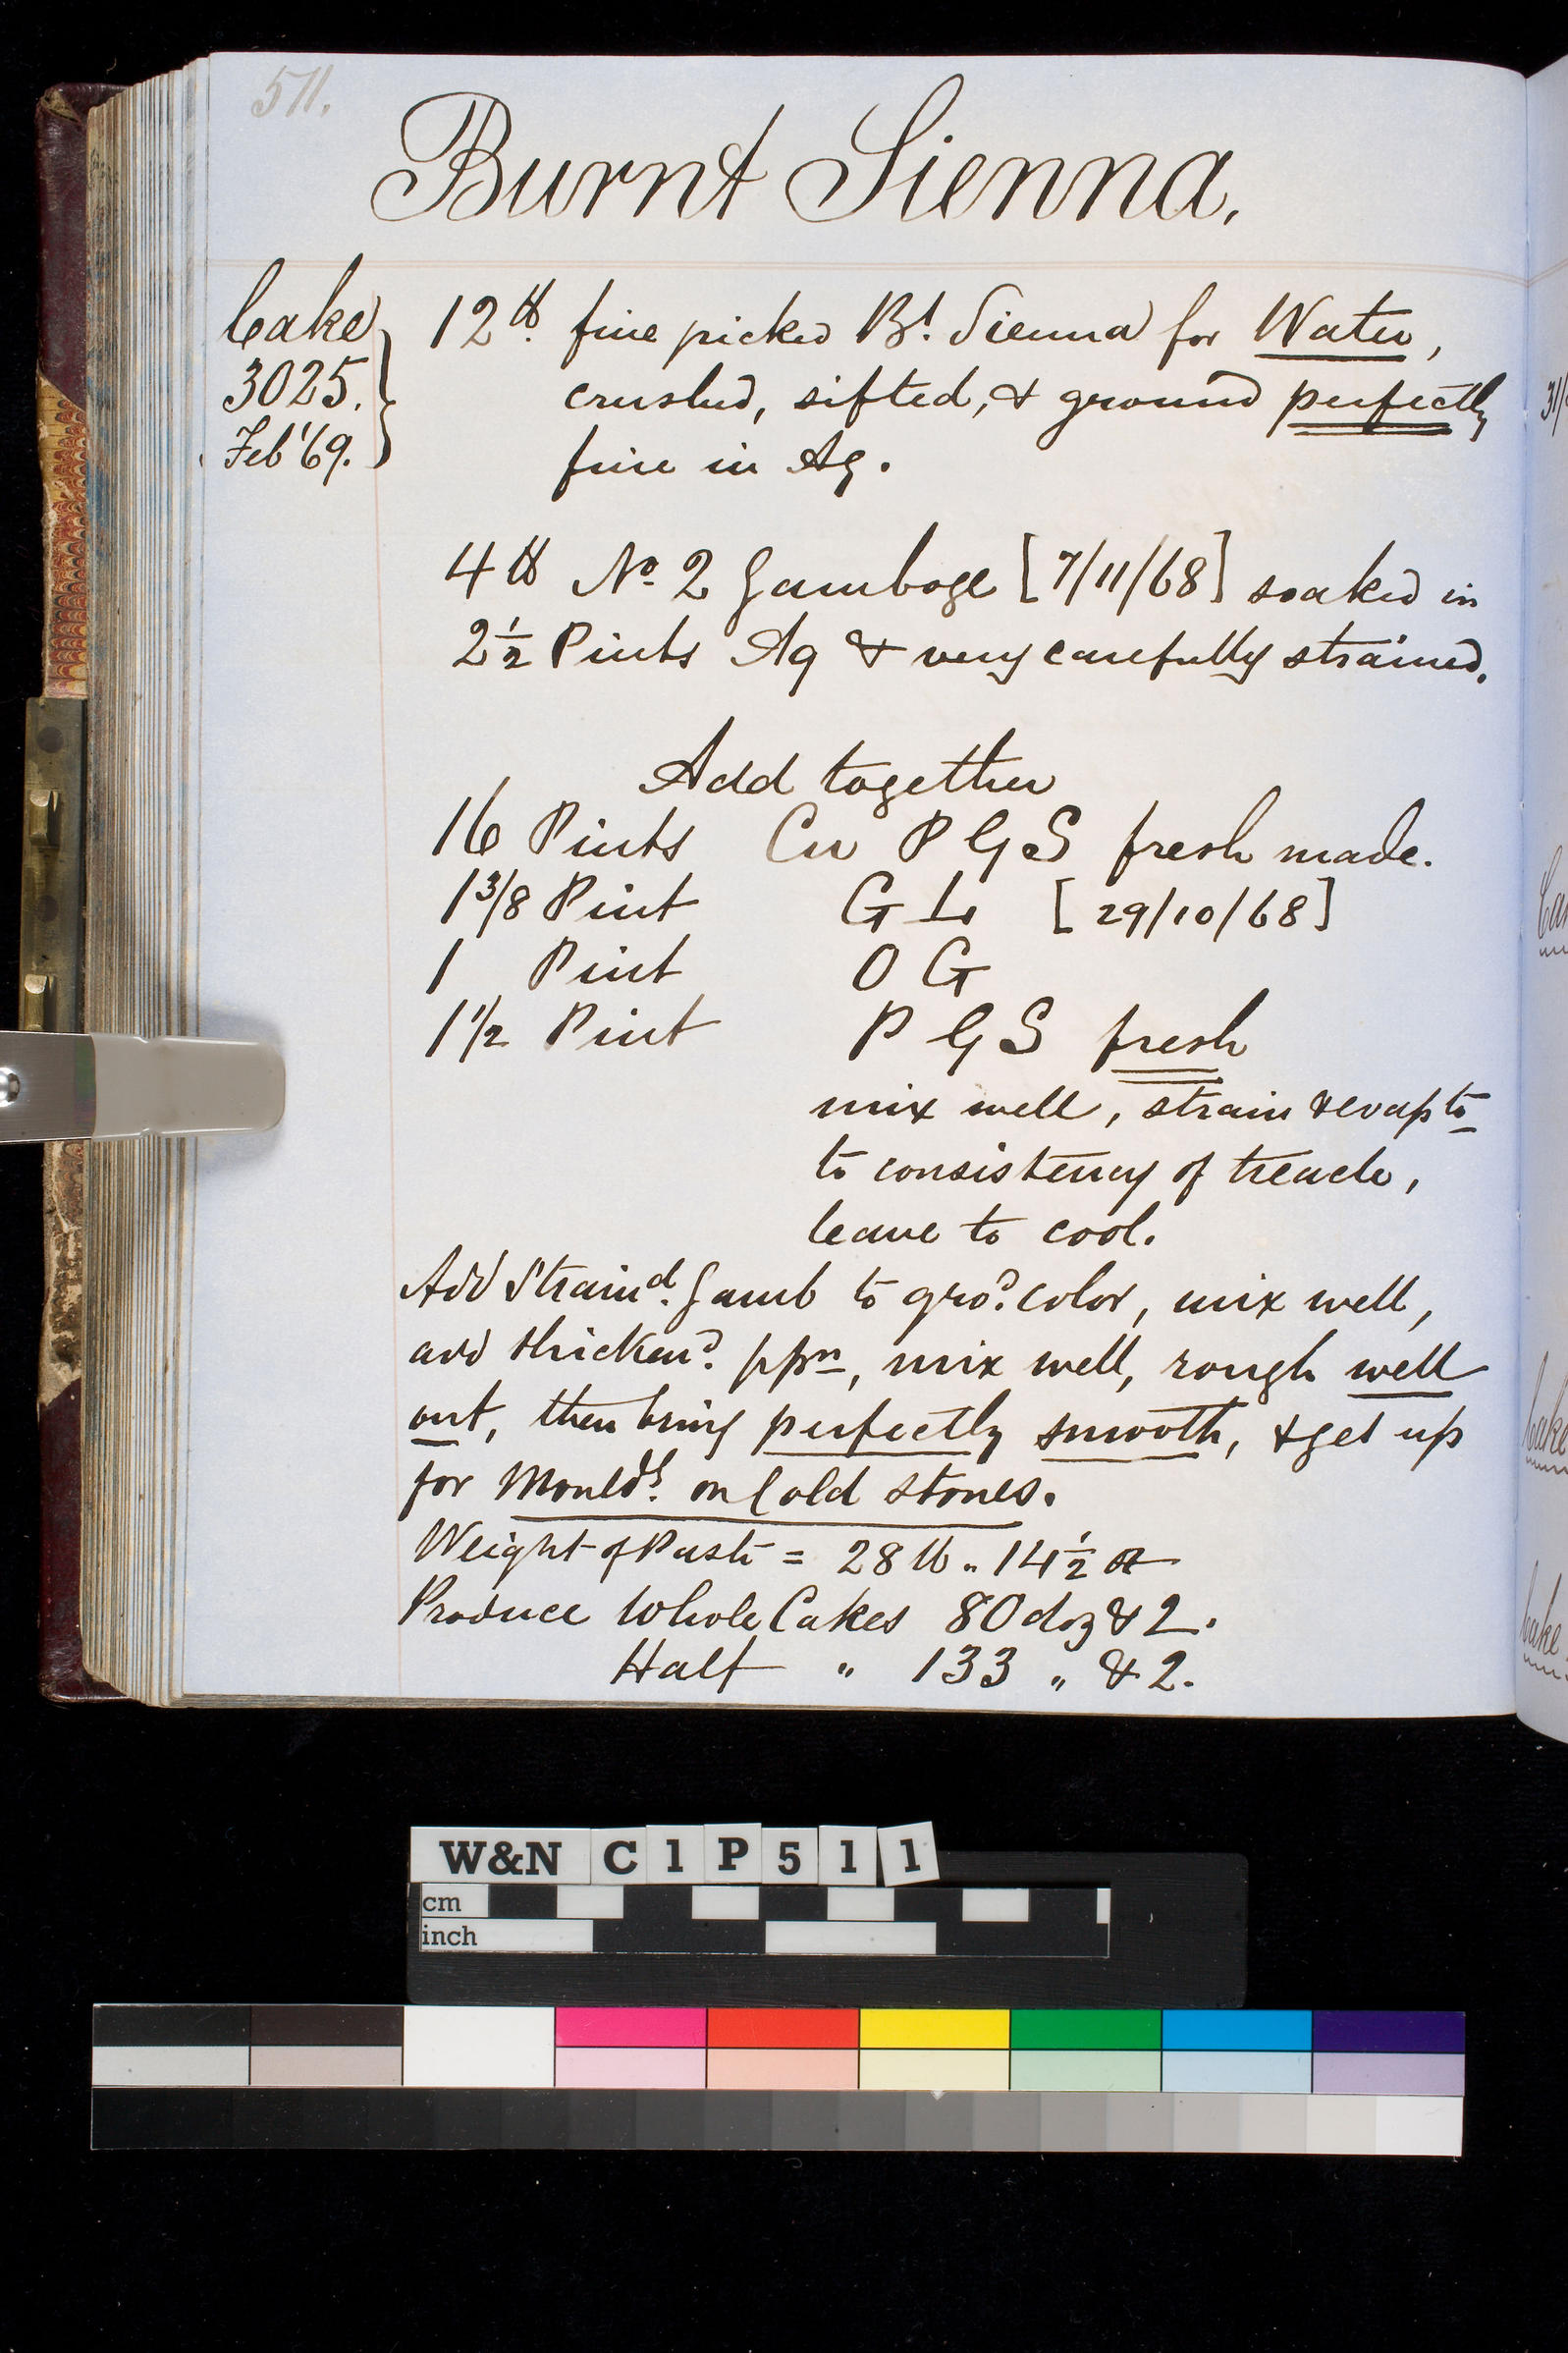 511.
Burnt Sienna.
Cake
3025.
Feb '69.
12 lb. fine picked Bt. Sienna for Water,
crushed, sifted, & ground perfectly
fine in Aq.
4 lb No. 2 Gamboge [7/11/68] soaked in
2½ Pints Aq & very carefully strained.
Add together
16 Pints Cu P G S fresh made.
1 3/8 Pint G L [29/10/68]
1 Pint O G
1 1/2 Pint P G S fresh
mix well, strain & evap to
to consistency of treacle,
leave to cool.
Add Straind. Gamb to grod. color, mix well,
add thickend. ppn, mix well, rough well
out, then bring perfectly smooth, & get up
for Mouldg. on Cold stones.
Weight of Paste = 28 lb „ 14½ oz
Produce Whole Cakes 80 doz & 2.
Half „ 133 „ & 2.
31/
Ca
Cake
Cake
W&N C1P511
cm
inch